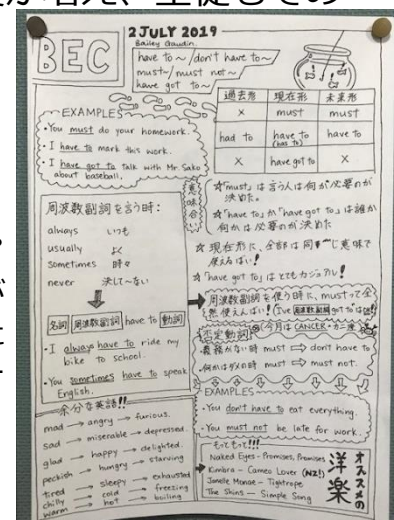 BEC
2 JULY 2019
Bailey Gaudin
have to ~ / don't have to ~
must ~ / must not ~
have got to ~
過去形 現在形 未来形
× must must
had to have to (has to) have to
× have got to ×
EXAMPLES
・You must do your homework.
・I have to mark this work.
・I have got to talk with Mr. Sako
about baseball.
意味合い
☆"must"は言う人は何が必要のが
決めた。
☆"have to"か"have got to"は誰か
何かは必要のが決めた
☆現在形に、全部は同じ意味で
使えるばい!
☆"have got to"はとてもカジュアル!
周波数副詞を言う時:
always いつも
usually よく
sometimes 時々
never 決して〜ない
名詞 周波数副詞 have to 動詞
・I always have to ride my
bike to school.
・You sometimes have to speak
English.
周波数副詞を使う時に、mustって全
然使えんばい!
否定動詞
今月は CANCER・カニ座
・義務がない時 must → don't have to
・何かはダメの時 must → must not.
EXAMPLES
・You don't have to eat everything.
・You must not be late for work.
余分な英語!!
mad → angry → furious.
sad → miserable → depressed.
glad → happy → delighted.
peckish → hungry → starving
tired → sleepy → exhausted
chilly → cold → freezing
warm → hot → boiling
もっともっと!!!
Naked Eyes - Promises, Promises
Kimbra - Cameo Lover (NZ!)
Janelle Monae - Tightrope
The Shins - Simple Song
オススメの
洋楽